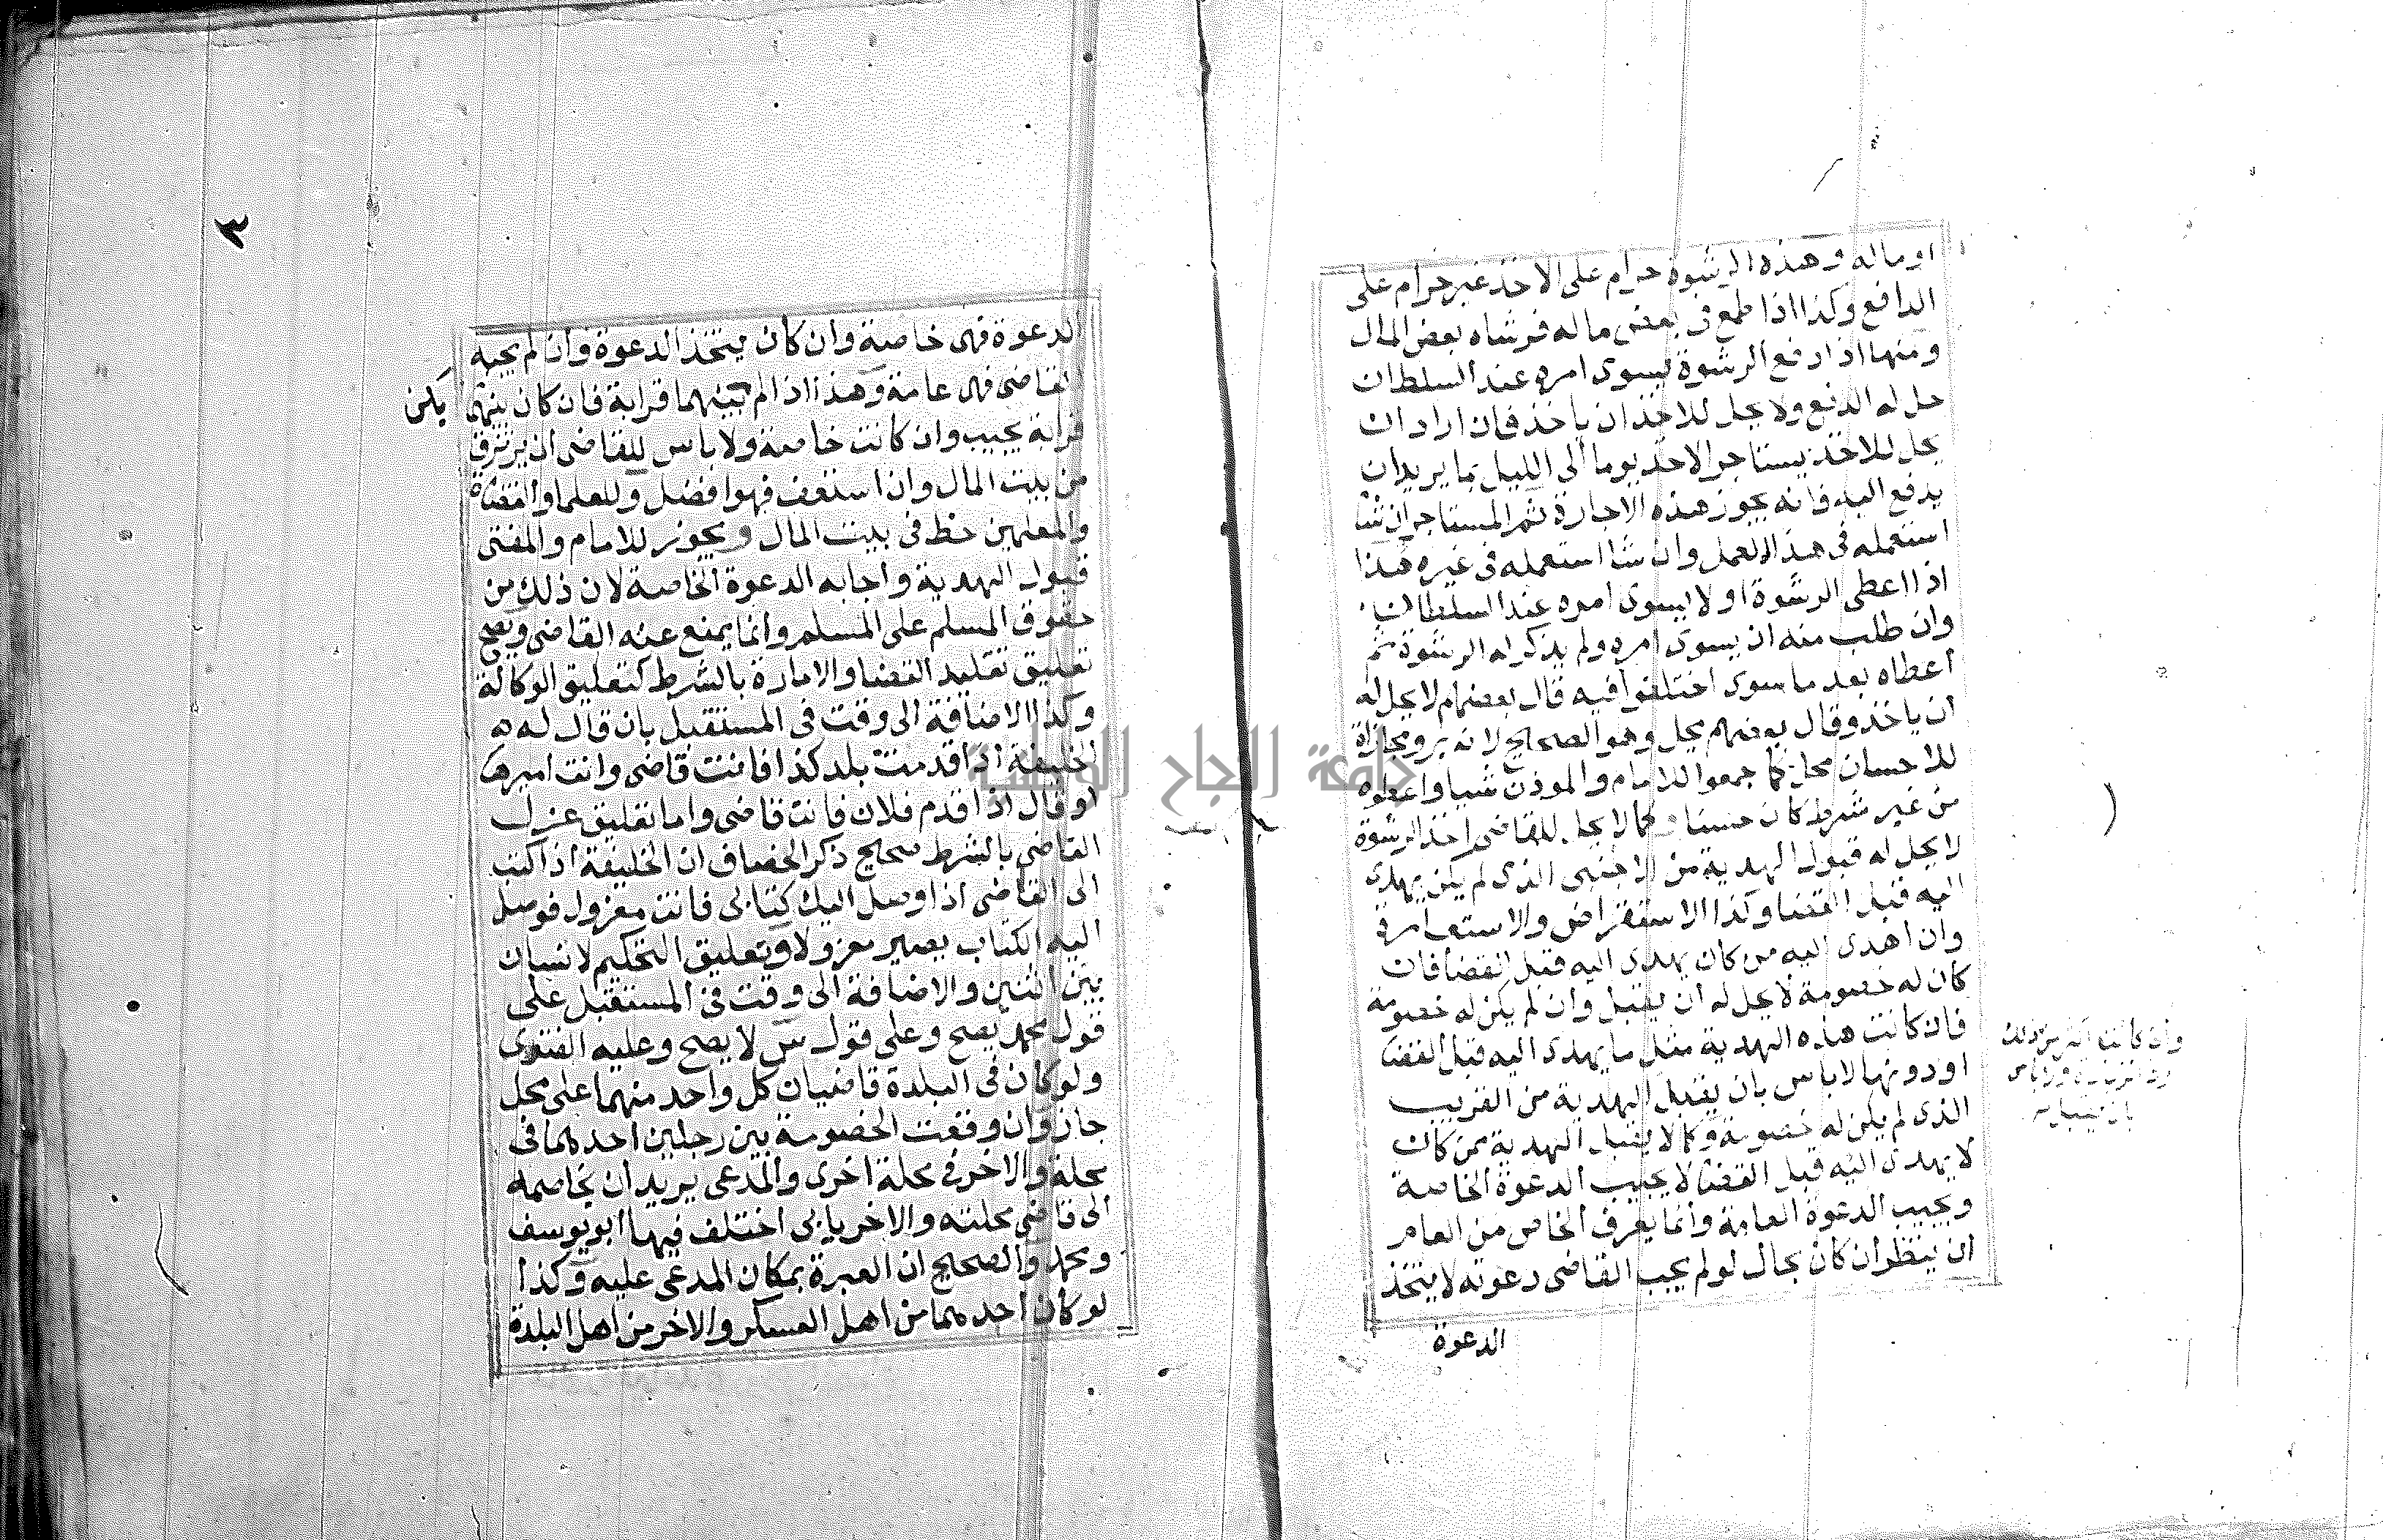 او ماله وهذه الرشوة حرام على الاخذ غير حرام على
الدافع وكذا اذا طمع في بعض ماله فرشاه بعض المال
ومنها اذا دفع الرشوة ليسوى امره عند السلطان
حل له الدفع ولا يحل للاخذ ان ياخذ فان اراد ان
يحل للاخذ يستاجر الاخذ يوما الى الليل بما يريد ان
يدفع اليه فانه يجوز هذه الاجارة ثم المستاجر ان شا
استعمله في هذا العمل وان شا استعمله في غيره هذا
اذا اعطى الرشوة اولا ليسوى امره عند السلطان
وان طلب منه ان يسوى امره ولم يذكر له الرشوة ثم
اعطاه بعد ما سوى اختلفوا فيه قال بعضهم لا يحل له
ان ياخذ وقال بعضهم يحل وهو الصحيح لانه بر ومجازاة
للاحسان يحل كما جمعوا للامام والموذن شيا واعطوه
من غير شرط كان حسنا كما لا يحل للقاضي اخذ الرشوة
لا يحل له قبول الهدية من الاجنبي الذى لم يكن يهدى
اليه قبل القضا وكذا الاستقراض والاستعارة
وان اهدى اليه من كان يهدى اليه قبل القضا فان
كان له خصومة لا يحل له ان يقبل وان لم يكن له خصومة
فان كانت هذه الهدية مثل ما يهدى اليه قبل القضا
او دونها لا باس بان يقبل الهدية من القريب
الذى لم يكن له خصومة وكما لا يقبل الهدية ممن كان
لا يهدى اليه قبل القضا لا يجيب الدعوة الخاصة
ويجيب الدعوة العامة وانما يعرف الخاص من العام
ان ينظر ان كان بحال لو لم يجب القاضي دعوته لا يتخذ
الدعوة
وان كانت اكثر من ذلك
رد الزيادة ولا باس
بان يقبل
٣
الدعوة فهى خاصة وان كان يتخذ الدعوة وان لم يجبه
القاضي فهى عامة وهذا اذا لم بينهما قرابة فان كان بينهما
يكن
قرابة يجيب وان كانت خاصة ولا باس للقاضي ان يرتزق
من بيت المال وان استعف فهو افضل وللعلما والقضاة
والمعلمين حظ في بيت المال ويجوز للامام والمفتى
قبول الهدية واجابه الدعوة الخاصة لان ذلك من
حقوق المسلم على المسلم وانما يمنع عنه القاضي ويصح
تعليق تقليد القضا والامارة بالشرط كتعليق الوكالة
وكذا الاضافة الى وقت في المستقبل بان قال له
الخليفة اذا قدمت بلد كذا فانت قاضي وانت اميرها
او قال اذا قدم فلان فانت قاضي واما تعليق عزل
القاضي بالشرط صحيح ذكر الخصاف ان الخليفة اذا كتب
الى القاضي اذا وصل اليك كتابى فانت معزول فوصل
اليه الكتاب يصير معزولا وتعليق التحكيم لانسان
بين اثنين والاضافة الى وقت في المستقبل على
قول محمد يصح وعلى قول س لا يصح وعليه الفتوى
ولو كان في البلدة قاضيان كل واحد منهما على محل
جاز وان وقعت الخصومة بين رجلين احدهما في
محلة والاخر في محلة اخرى والمدعى يريد ان يخاصمه
الى قاضي محلته والاخر يابى اختلف فيها ابويوسف
ومحمد والصحيح ان العبرة بمكان المدعى عليه وكذا
لو كان احدهما من اهل العسكر والاخر من اهل البلدة
جامعة النجاح الوطنية